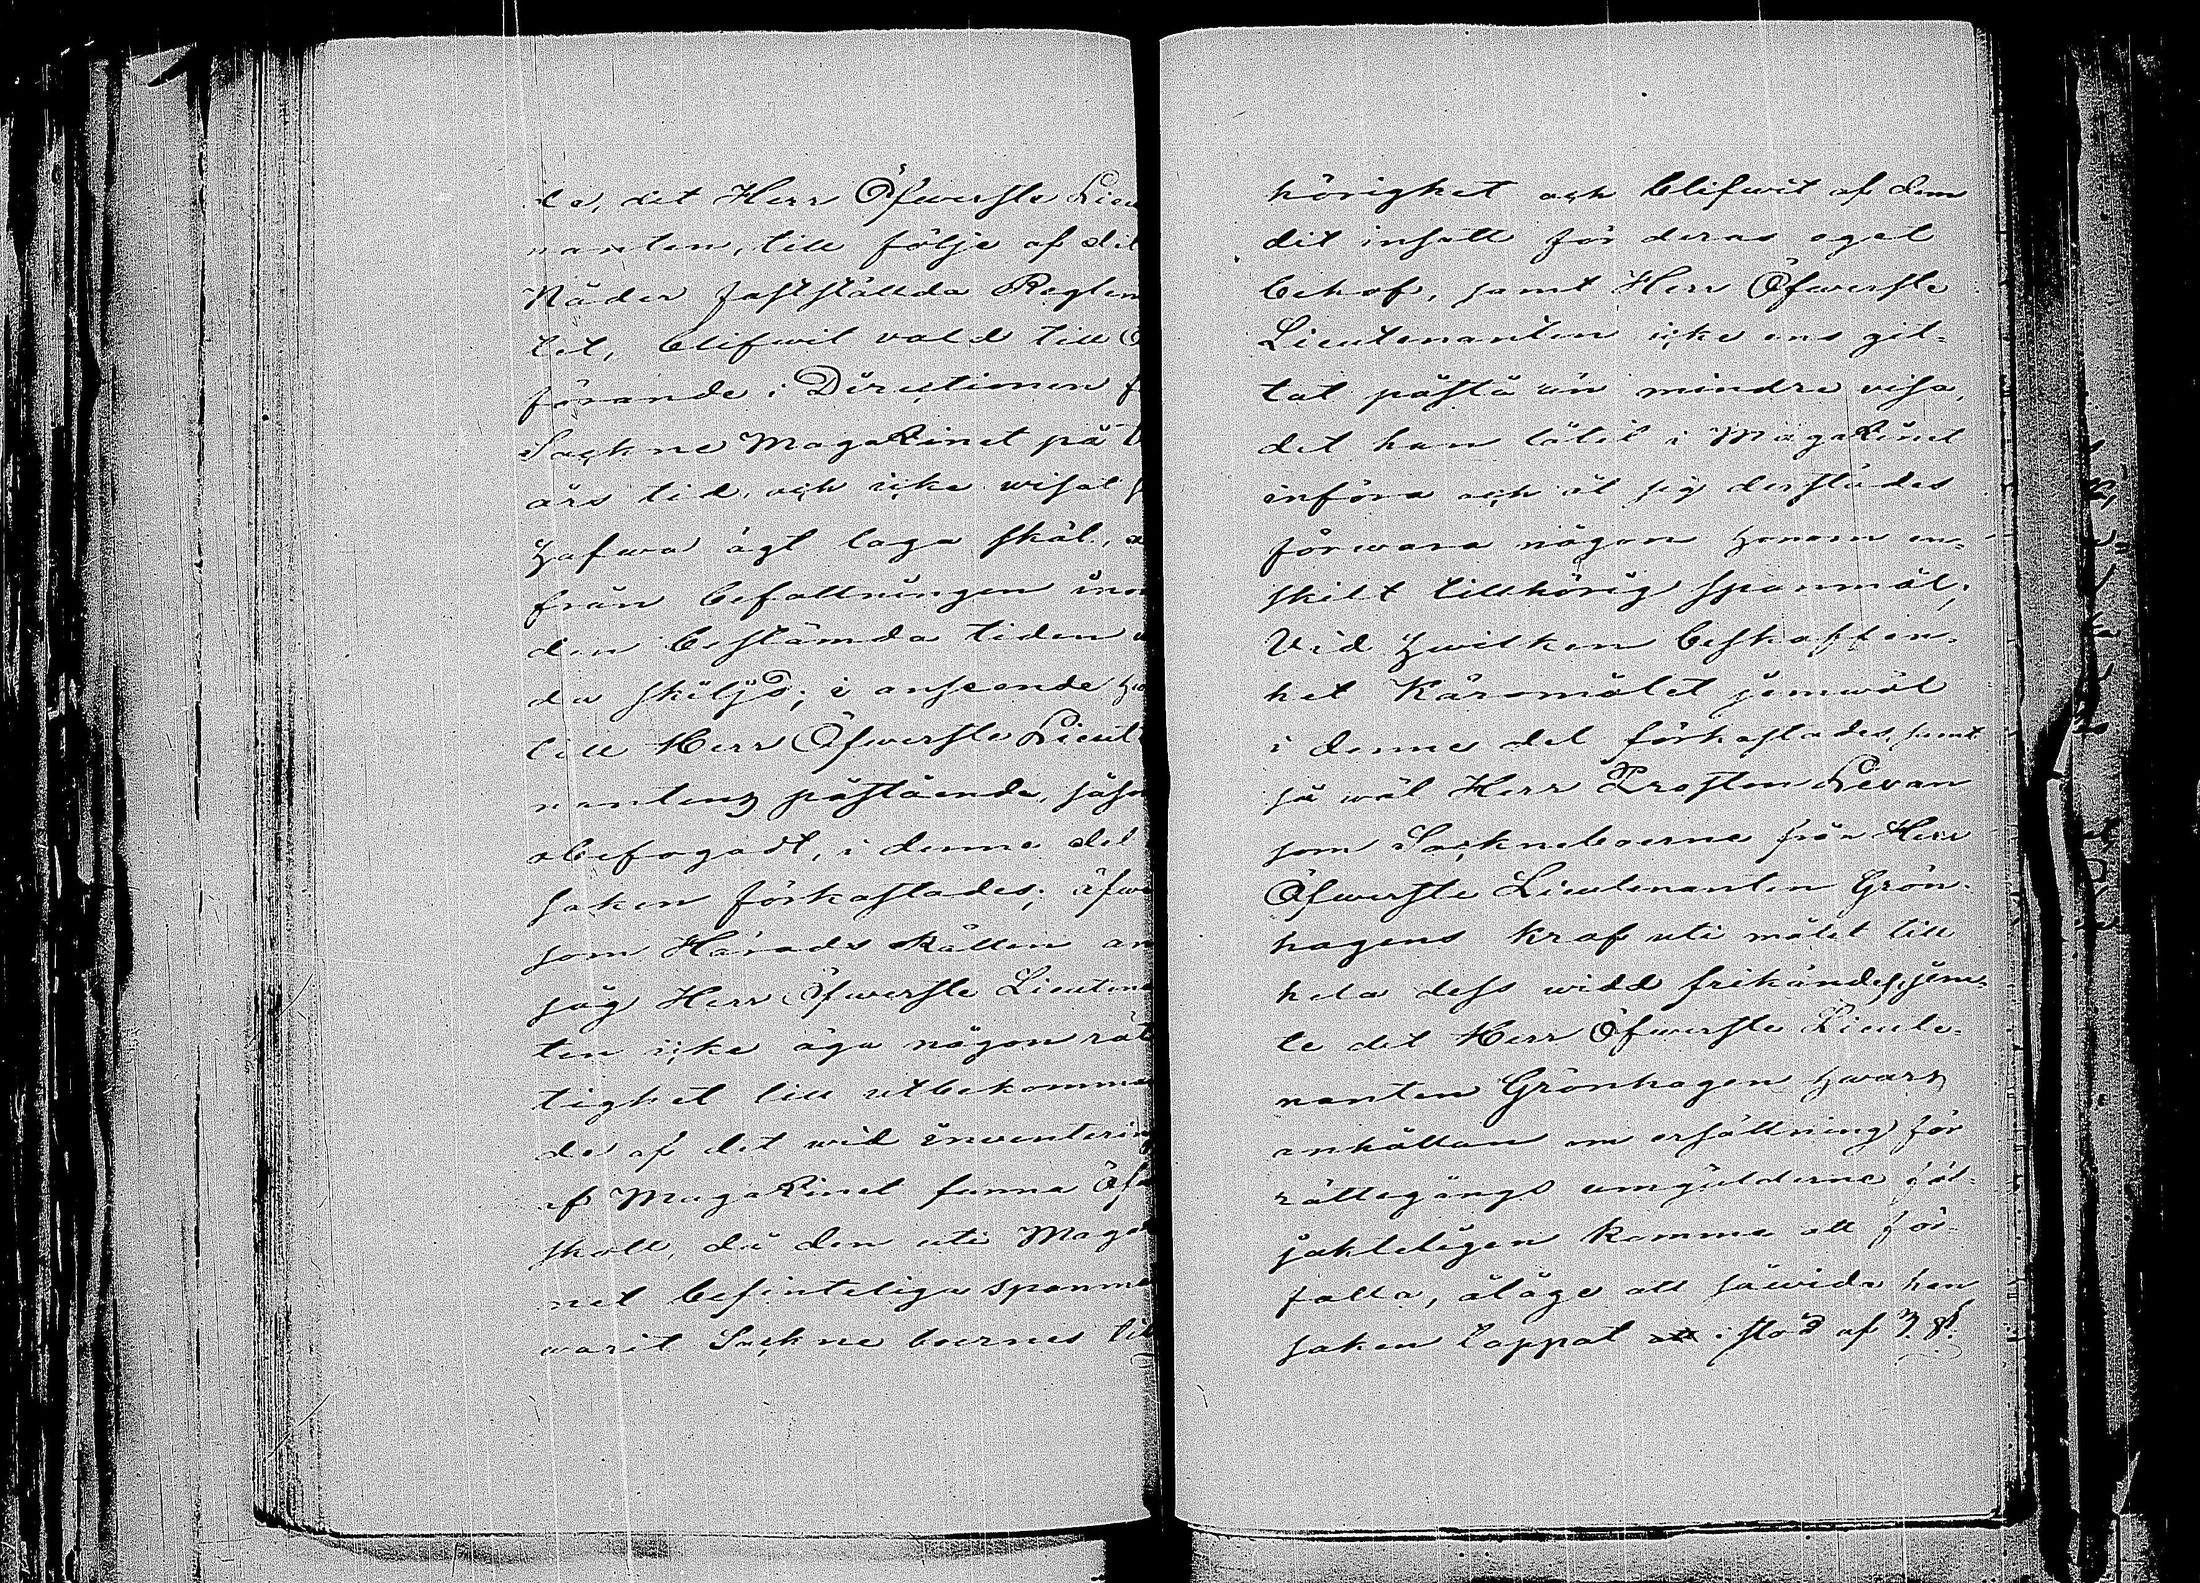 de, det Herr Öfwerste Lieu
nanten, till följe af det
Nåder fastställda Reglem
tet, blifwit vald till O
förande i Directionen f
Sockne Magazinet på t
års tid, och icke wisat s
hafwa ägt laga skäl, a
från befattningen inn
den bestämda tiden u
da skiljd; i anseende hw
till Herr Öfwerste Lieute
nantens påstående, såso
obefogadt, i denne del
saken förkastades; äfwe
som Härads Rätten an
såg Herr Öfwerste Lieutena
ten icke äga någon rät
tighet till utbekomma
de af det wid inventerin
af Magazinet funna öfw
skott, då den uti Maga
net befinteliga spanmå
warit Sockne boernes til
hörighet och blifwit af dem
dit insatt för deras eget
behof, samt Herr Öfwerste
Lieutenanten icke ens git-
tat påstå än mindre visa,
det han låtit i Magazinet
införa och åt sig derstädes
förwara någon honom en-
skilt tillhörig spanmål;
Vid hwilken beskaffen-
het Käromålet jemwäl
i denne del förkastades, samt
så wäl Herr Prosten Levan
som Sockneboerne från Herr
Öfwerste Lieutenanten Grön-
hagens kraf uti målet till
hela dess widd frikändes, jem-
te det Herr Öfwerste Lieute-
nanten Grönhagen hwars
anhållan om ersättning för
rättegångs umgälderne föl-
jakteligen komme att för-
falla, ålåge att såwida han
saken tappat i stöd af 3. §.